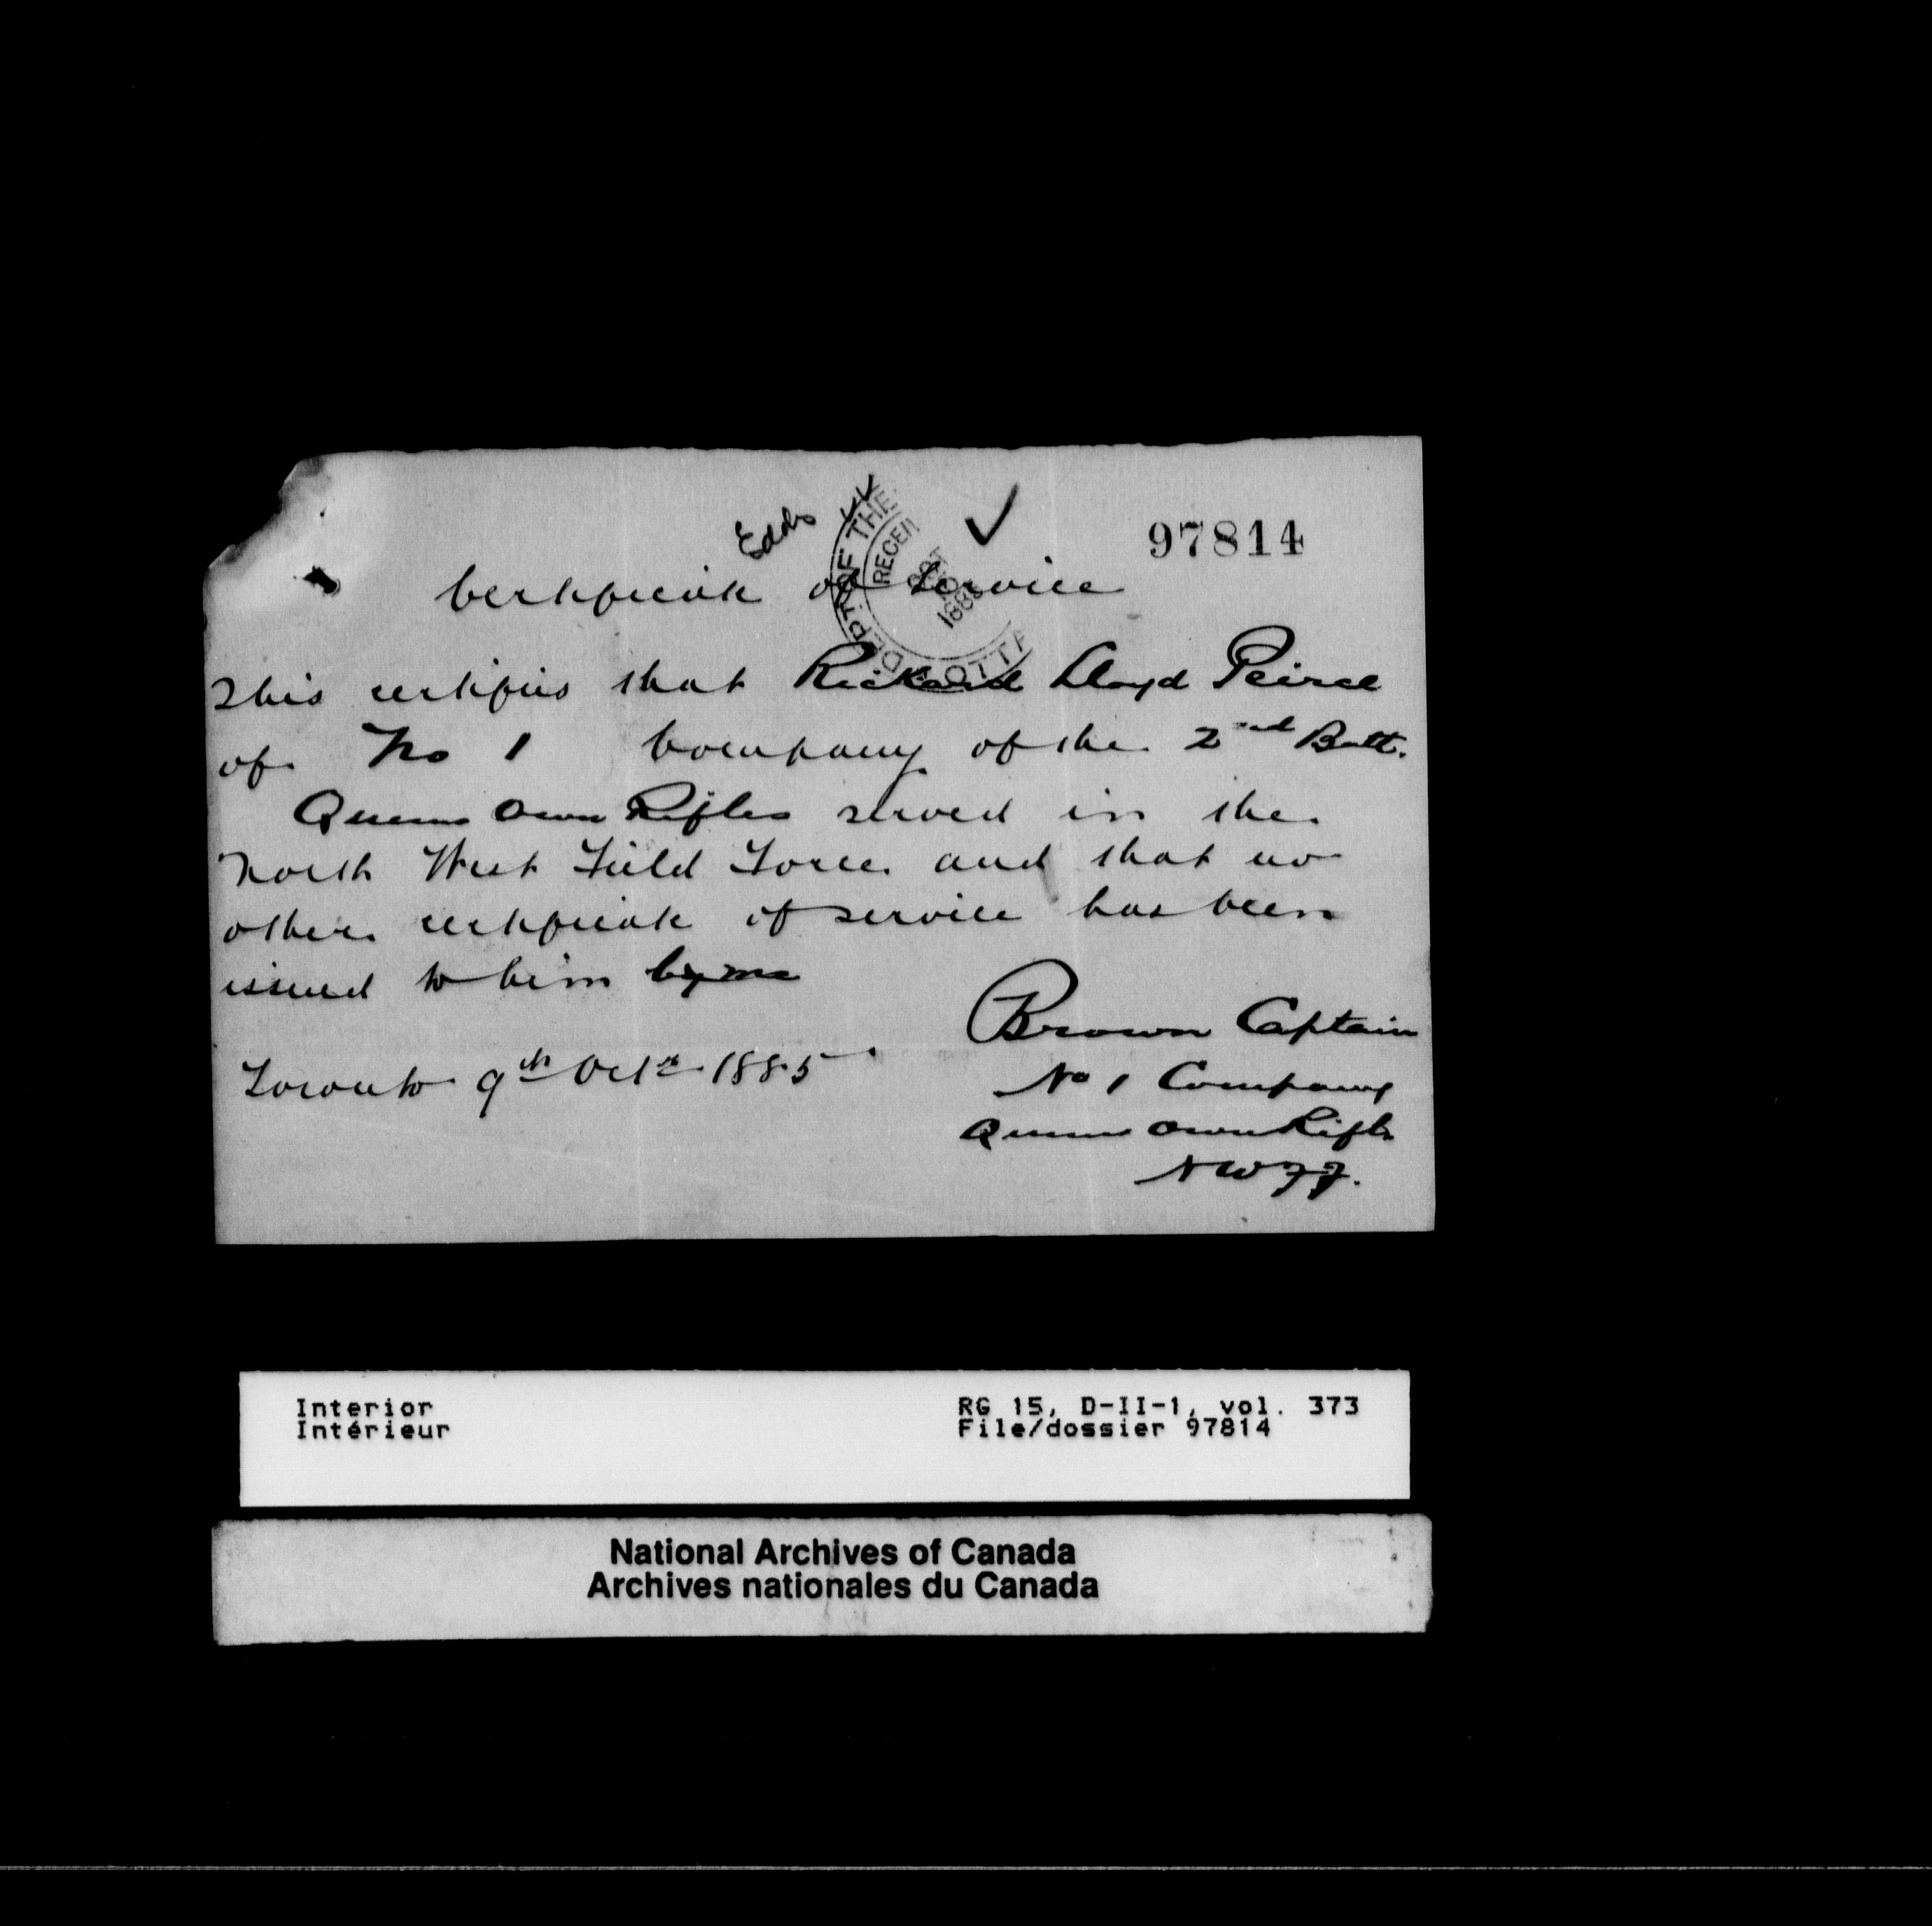 97814
Certificate of Service
DEPT. OF THE
OTTA
OCT
This certifies that Rickard Lloyd Peirce
of No 1 Company of the 2nd Batt.
Queens Own Rifles served in the
North West Field Force and that no
other certificate of service has been
issued to him by me
Brown Captain
Toronto 9th Octr 1885
No 1 Company
Queens Own Rifles
NWFF.
Interior
Intérieur
RG 15, D-II-1, vol. 373
File/dossier 97814
National Archives of Canada
Archives nationales du Canada